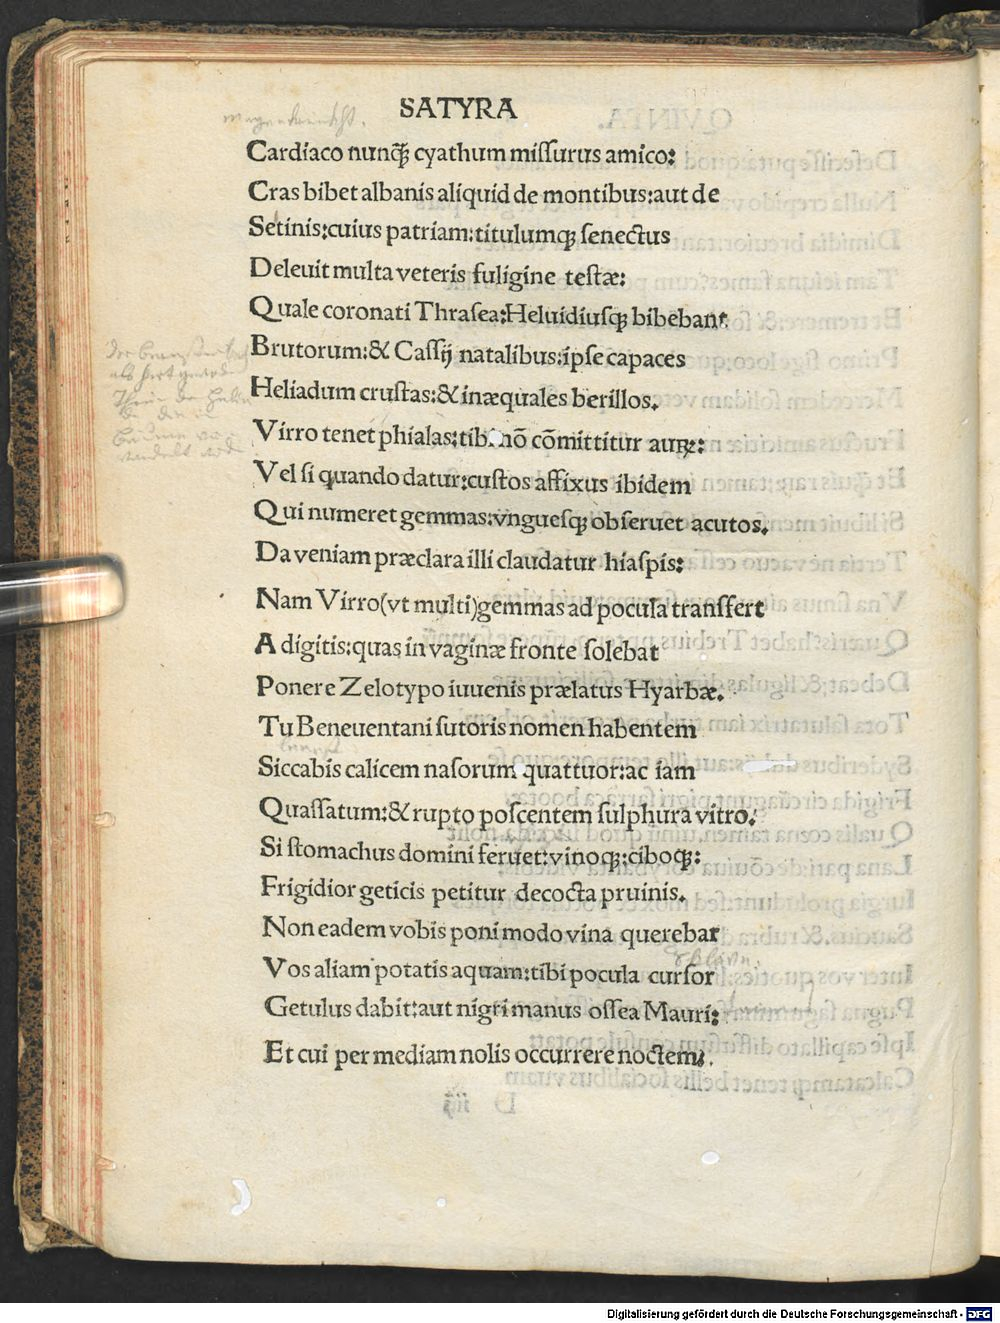 SATYRA
Cardiaco nunq̃ʒ cyathum miſſurus amico:
Cras bibet albanis aliquid de montibus:aut de
Setinis:cuius patriam:titulumqʒ ſenectus
Deleuit multa veteris fuligine teſtæ:
Quale coronati Thraſea:Heluidiuſqʒ bibebant
Brutorum:& Caſſij natalibus:ipſe capaces
Heliadum cruſtas:& inæquales berillos.
Virro tenet phialas:tibi nō cōmittitur auꝝ:
Vel ſi quando datur:cuſtos affixus ibidem
Qui numeret gemmas:vngueſqʒ obſeruet acutos.
Da veniam præclara illi claudatur hiaſpis:
Nam Virro(vt multi)gemmas ad pocula tranſfert
A digitis:quas in vaginæ fronte ſolebat
Ponere Zelotypo iuuenis prælatus Hyarbæ.
Tu Beneuentani ſutoris nomen habentem
Siccabis calicem naſorum quattuor:ac iam
Quaſſatum:& rupto poſcentem ſulphura vitro.
Si ſtomachus domini feruet:vinoqʒ:ciboqʒ:
Frigidior geticis petitur decocta pruinis.
Non eadem vobis poni modo vina querebar
Vos aliam potatis aquam:tibi pocula curſor
Getulus dabit:aut nigri manus oſſea Mauri:
Et cui per mediam nolis occurrere noctem.
Digitalisierung gefördert durch die Deutsche Forschungsgemeinschaft - DFG